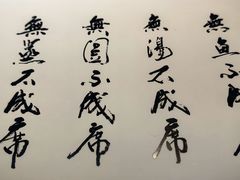 無魚不成席
無湯不成席
無圓不成席
無蒸不成席